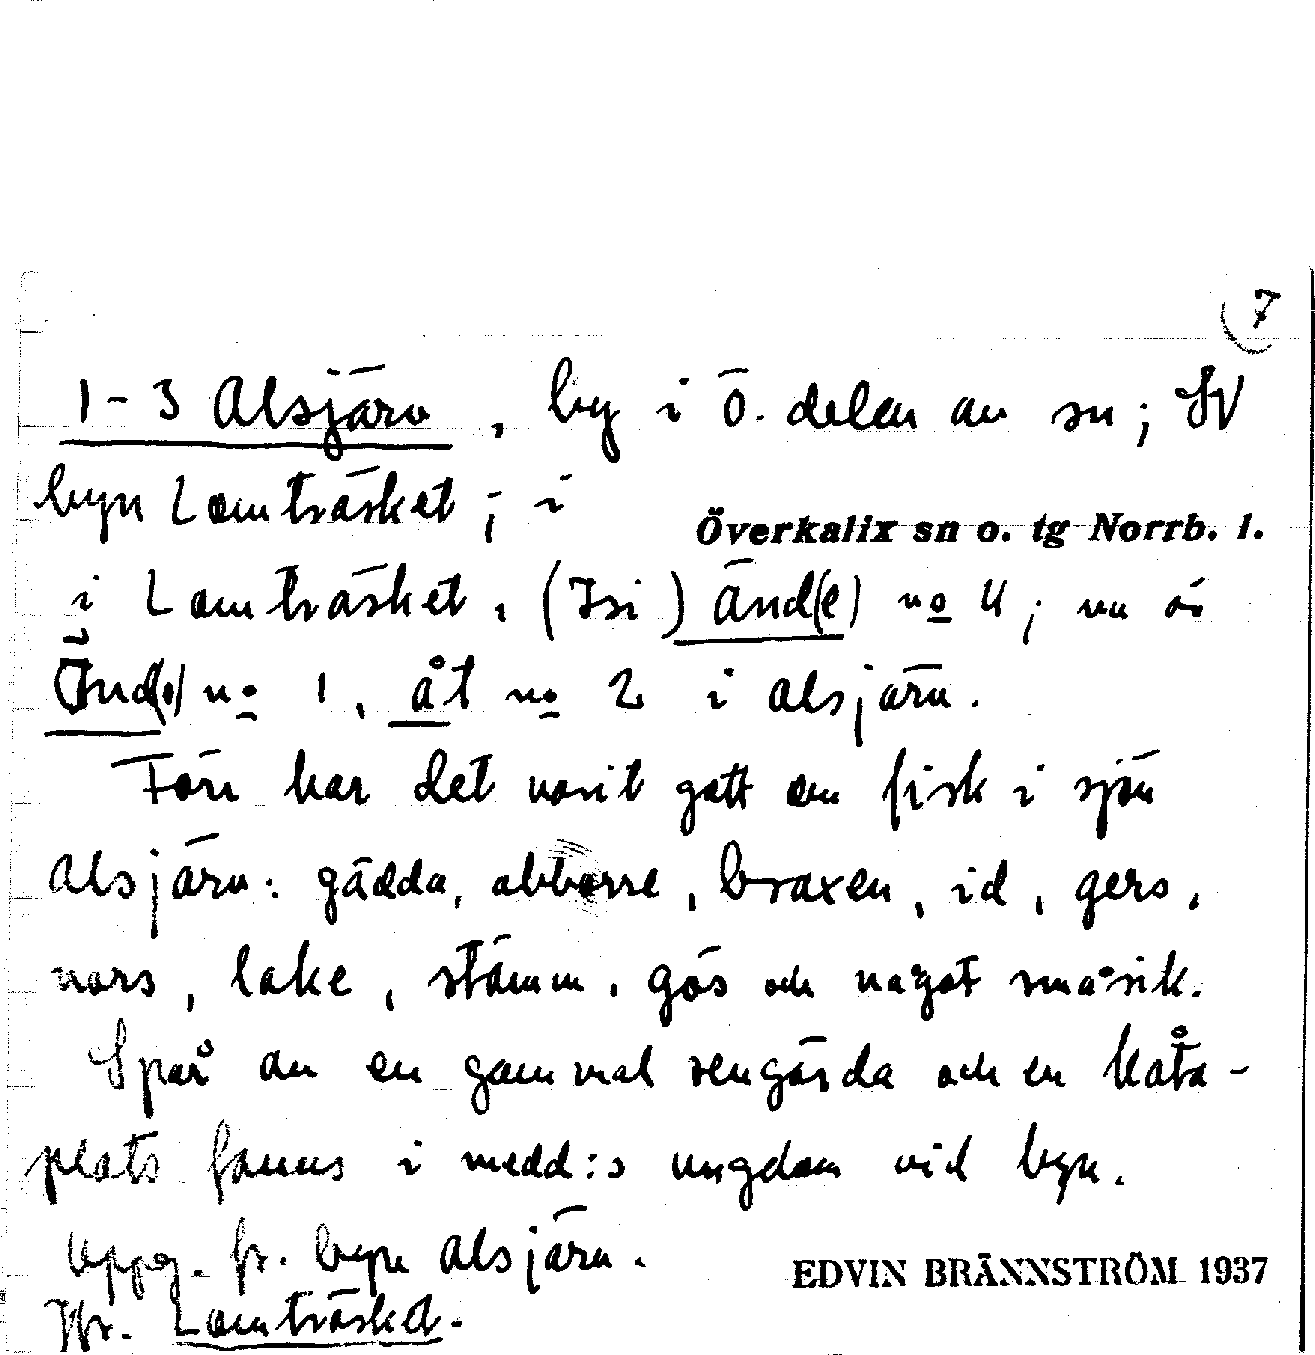 7
1-3 Alsjärv, by i ö. delen av sn; SV
byn Lomträsket; i
Överkalix sn o. tg Norrb. l.
i Lomträsket, (Isi) änd(e) no 4; nu är
änd(e) no 1, åt no 2 i Alsjärv.
Förr har det varit gott om fisk i sjön
Alsjärv: gädda, abborre, braxen, id, gers,
nors, lake, stämm, gös och något småsik.
Spår av en gammal rengärda och en kåta-
plats fanns i medd:s ungdom vid byn.
Uppg. fr. byn Alsjärv.
EDVIN BRÄNNSTRÖM 1937
Jfr. Lomträsket.